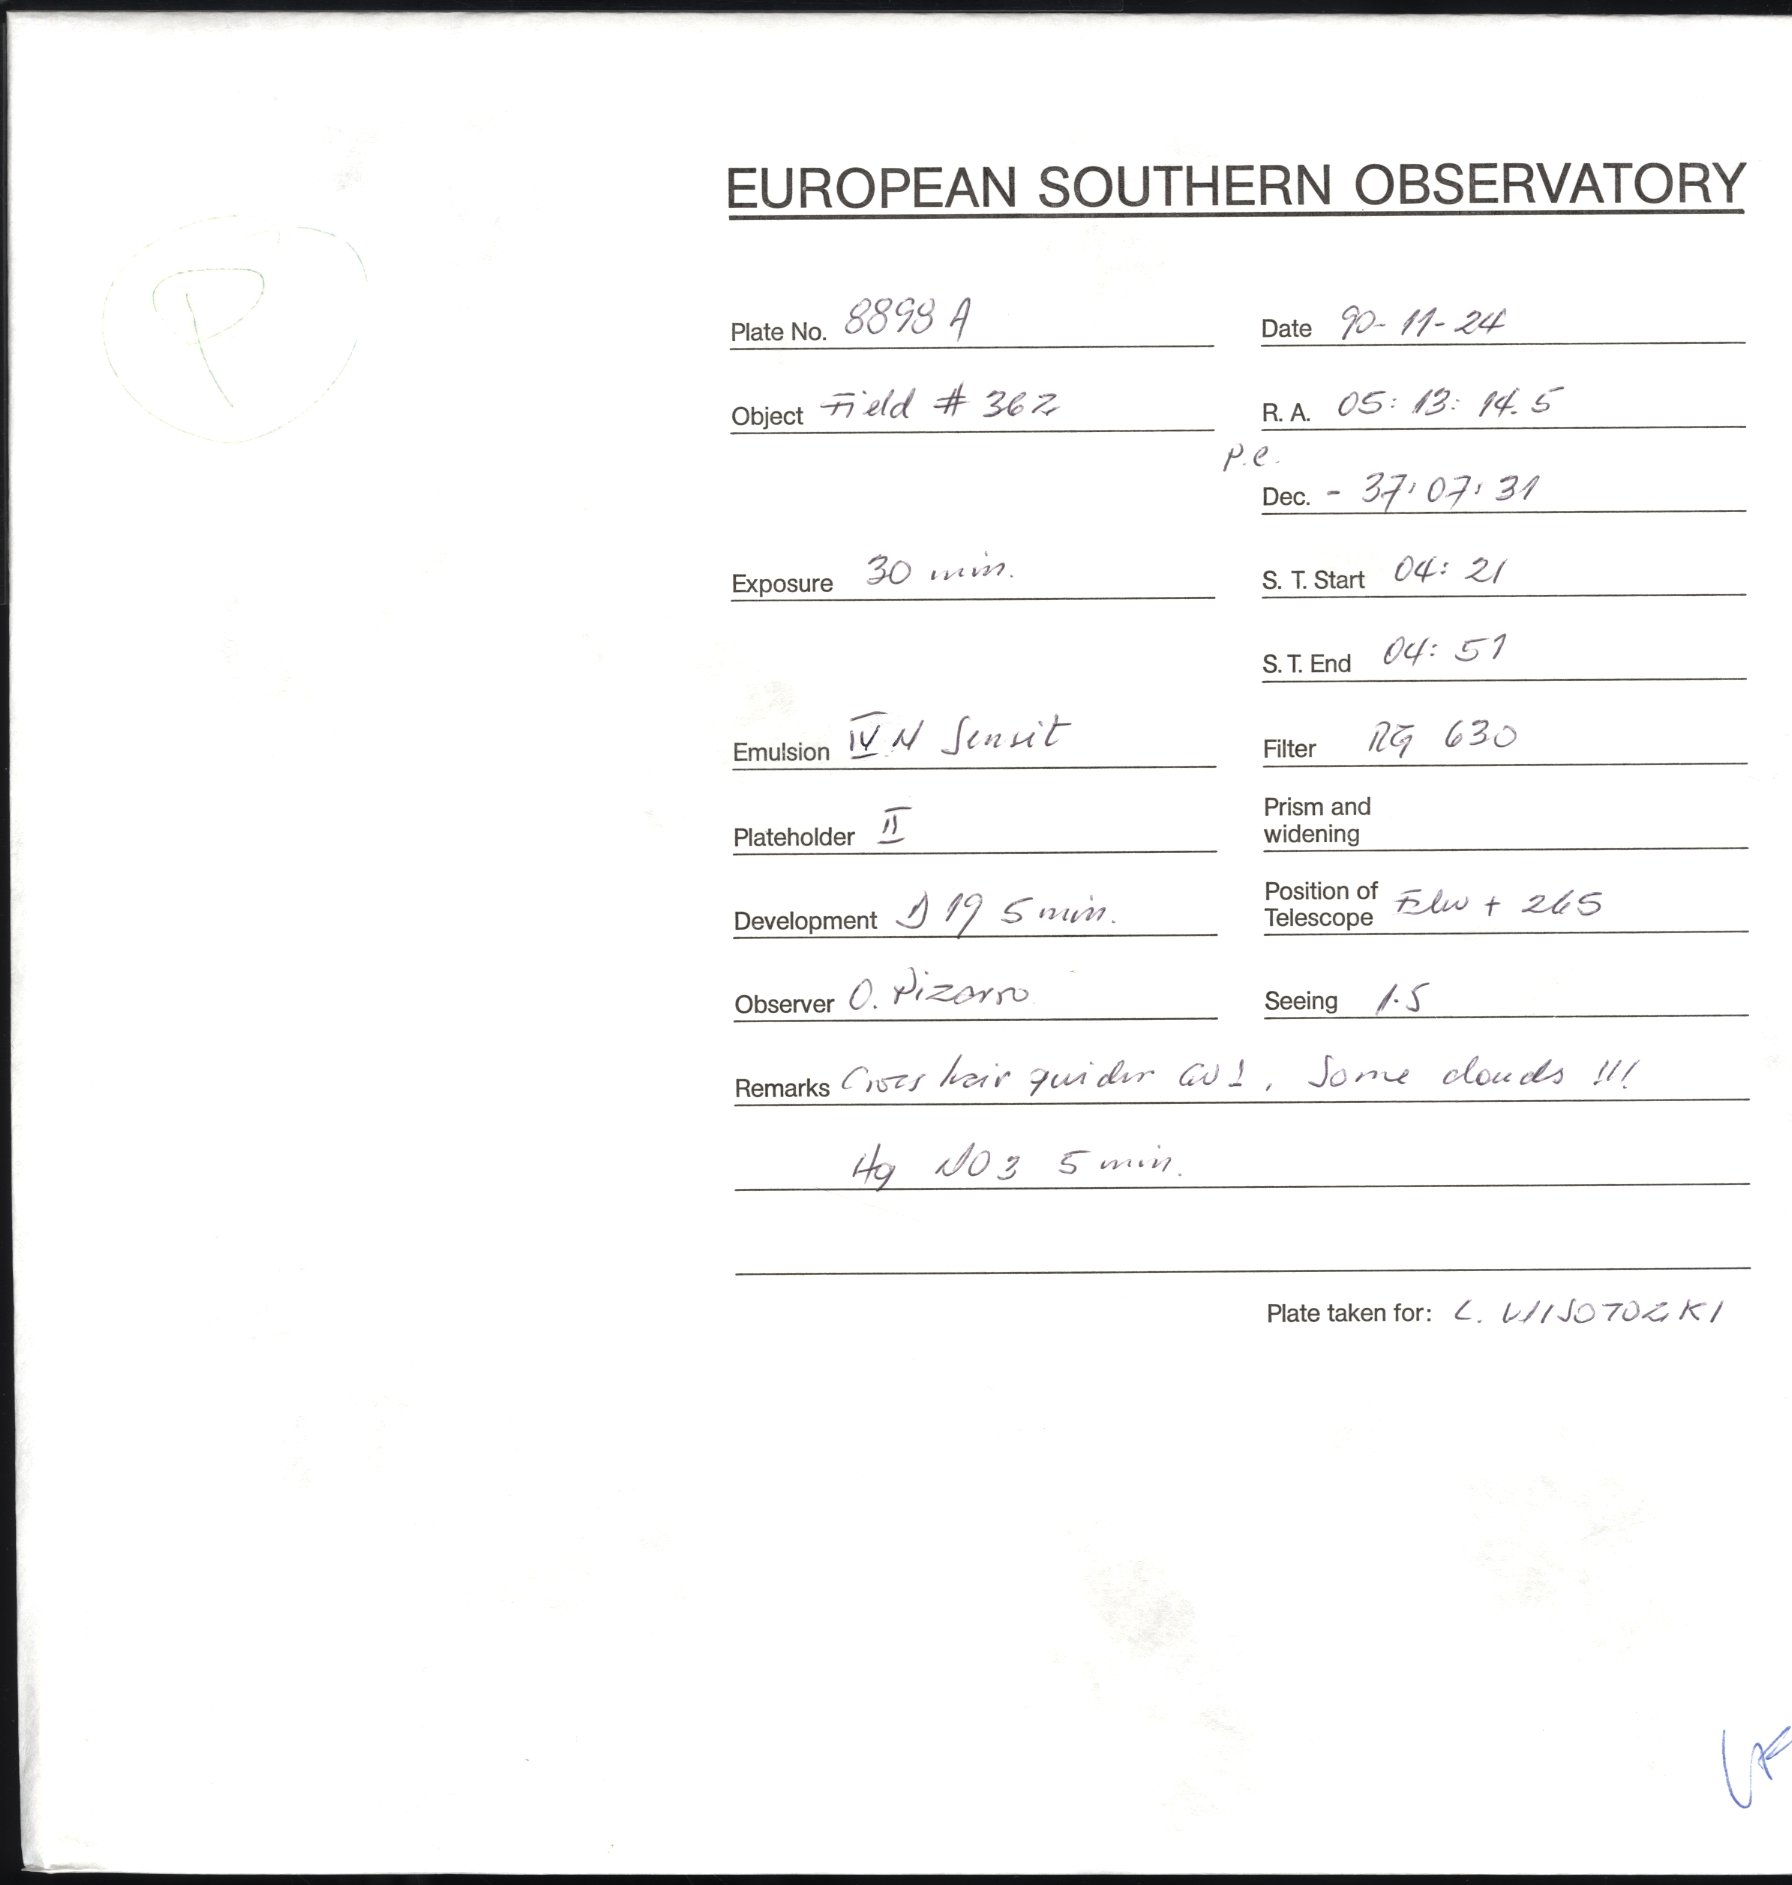 P
EUROPEAN SOUTHERN OBSERVATORY
Plate No. 8898 A
Date 90-11-24
Object Field # 362
R. A. 05: 13: 14.5
p.c.
Dec. - 37: 07: 31
Exposure 30 min.
S. T. Start 04: 21
S. T. End 04: 51
Emulsion IV N Sensit
Filter RG 630
Plateholder II
Prism and
widening
Development D 19 5 min.
Position of
Telescope + 265
Observer O. Pizarro
Seeing 1.5
Remarks Cross hair guider , Some clouds !!!
Hg NO3 5 min.
Plate taken for: L. WISOTOZKI